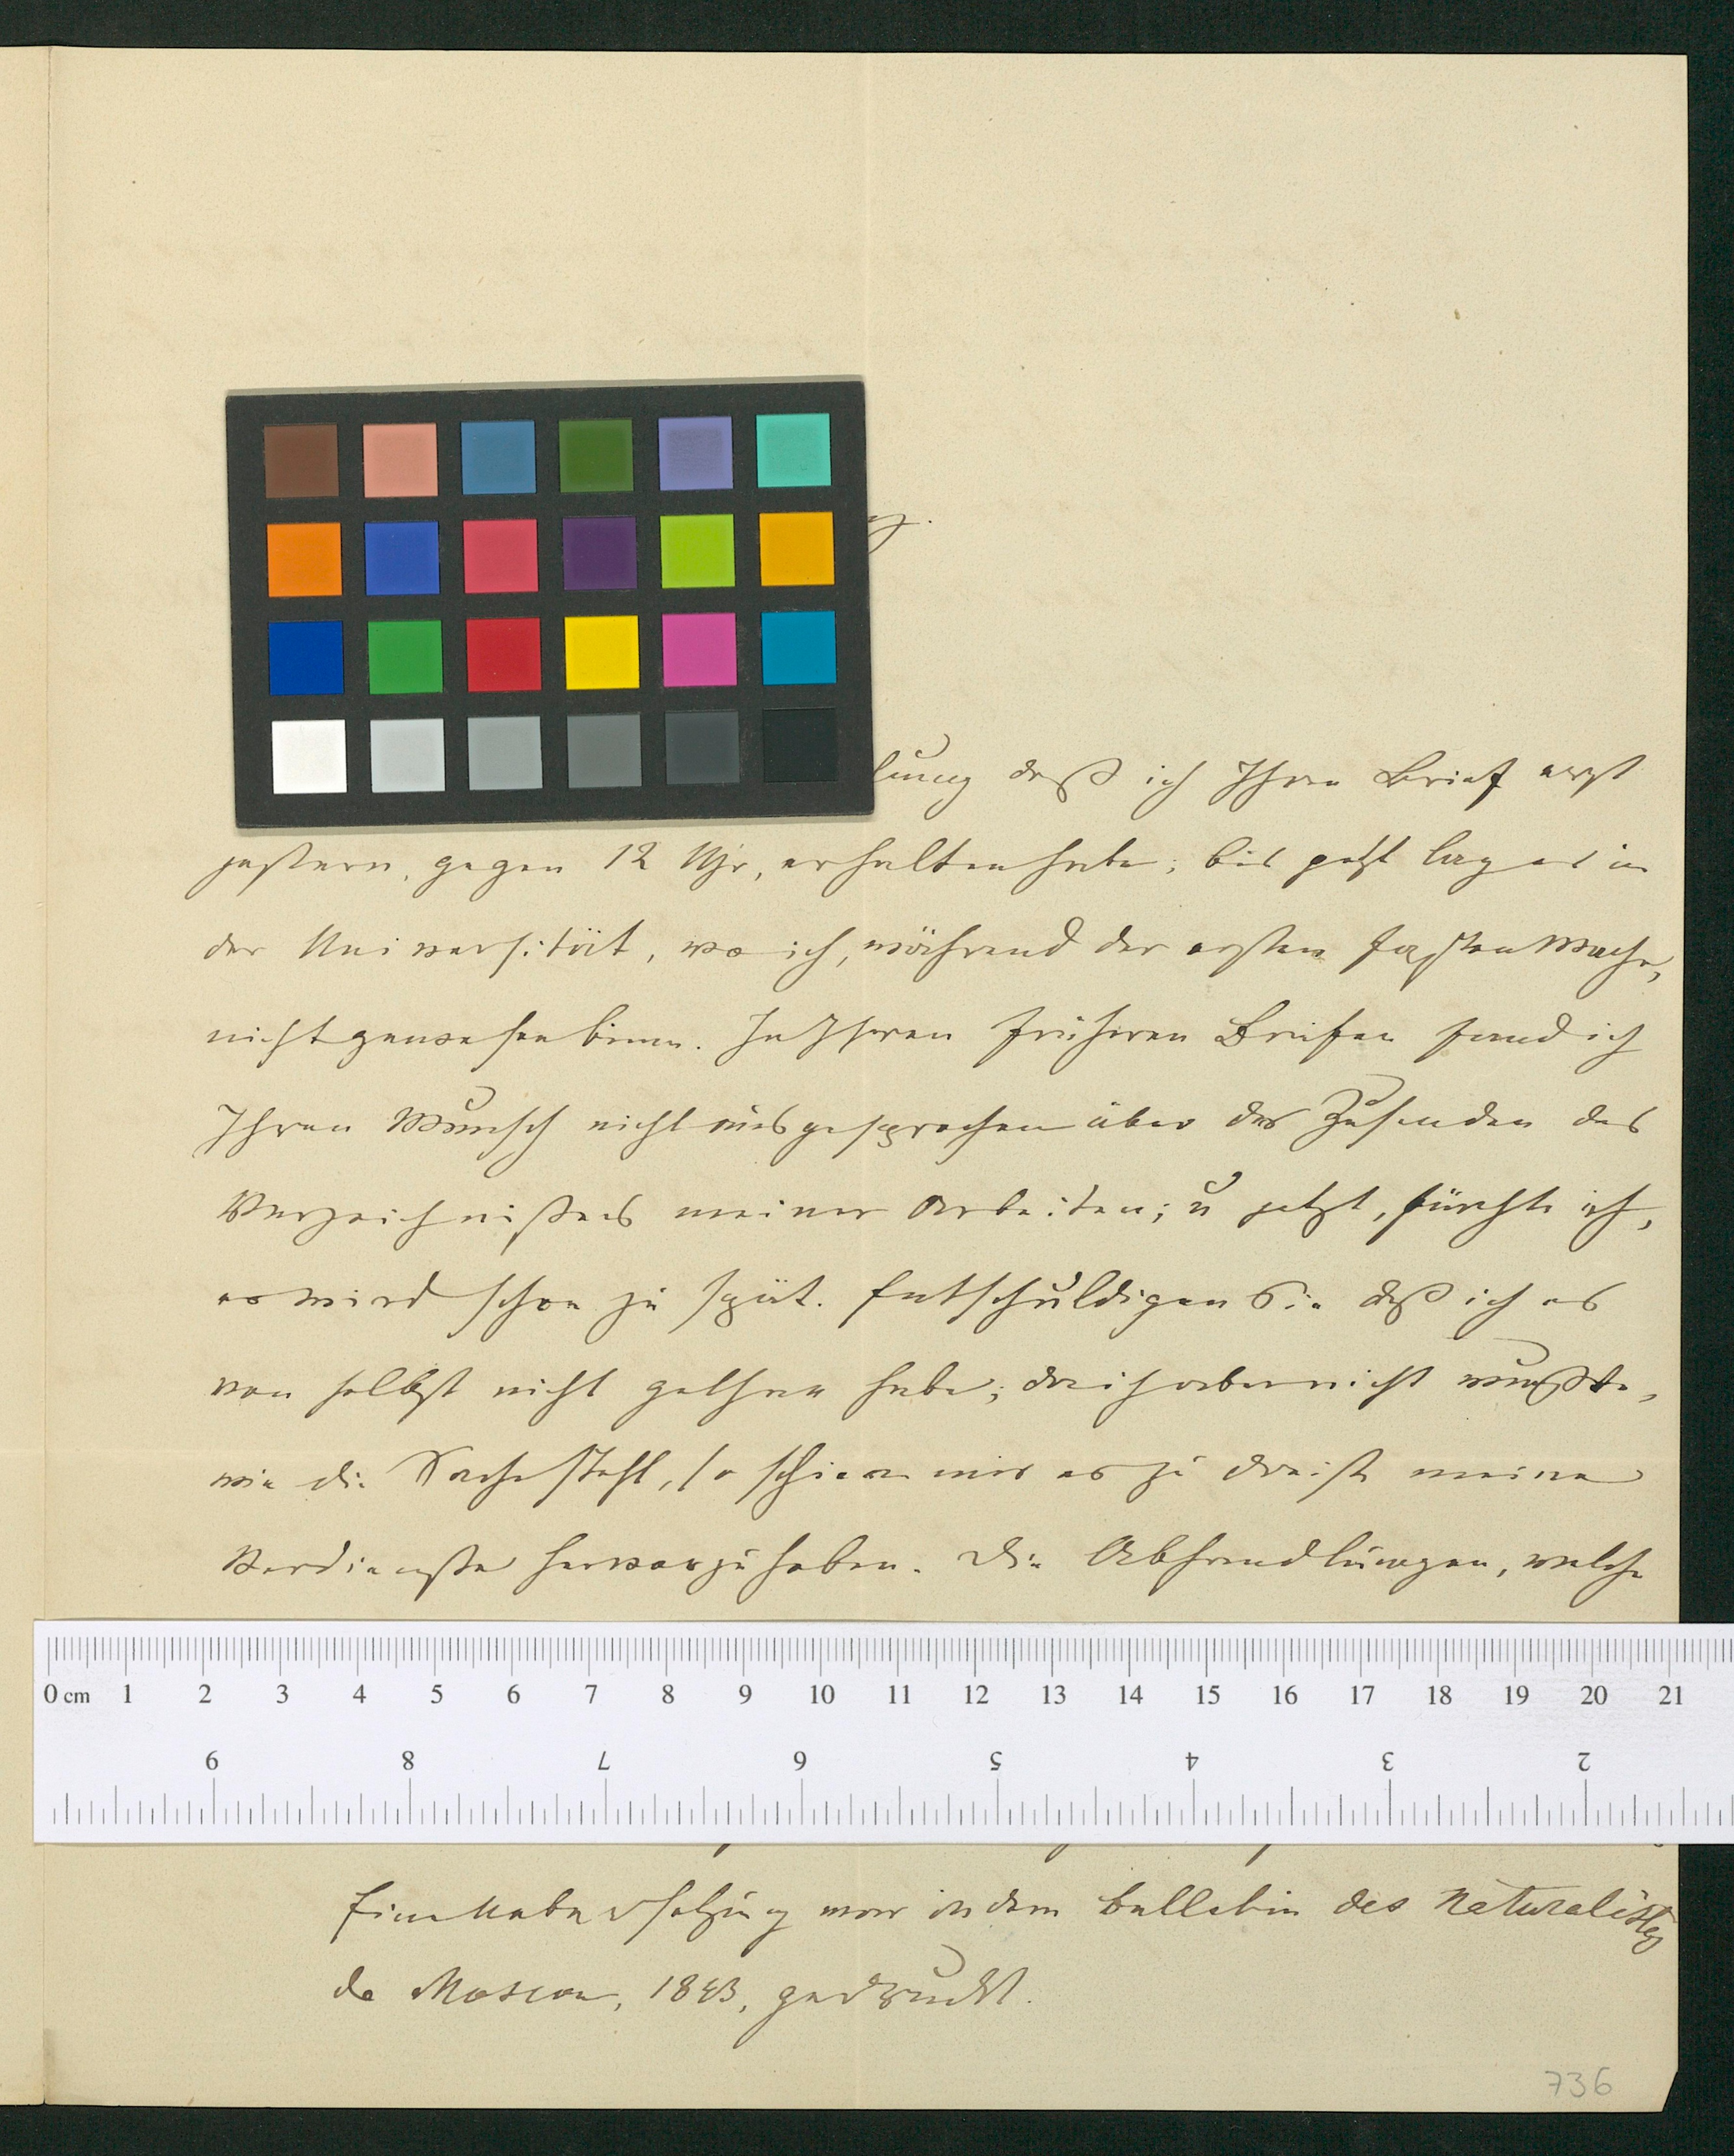 lung daß ich Ihren Brief erst
gestern, gegen 12 Uhr, erhalten habe; bis jetzt lag es in
der Universität, wo ich, während der ersten Fastenwoche,
nicht gewesen binn. In Ihren früheren Briefen fand ich
Ihren Wunsch nicht ausgesprochen über das Zusenden des
Verzeichnißes meiner Arbeiten; u jetzt, fürchte ich,
es wird schon zu spät. Entschuldigen Sie daß ich es
von selbst nicht gethan habe; da ich aber nicht wußte,
wie die Sache steht, so schien mir es zu dreist meine
Verdienste hervorzuheben. Die Abhandlungen, welche
0 cm 1 2 3 4 5 6 7 8 9 10 11 12 13 14 15 16 17 18 19 20 21
9 8 7 6 5 4 3 2
Eine Uebersetzung war in dem Bulletin des Naturalistes
de Moscou, 1843, gedruckt.
736